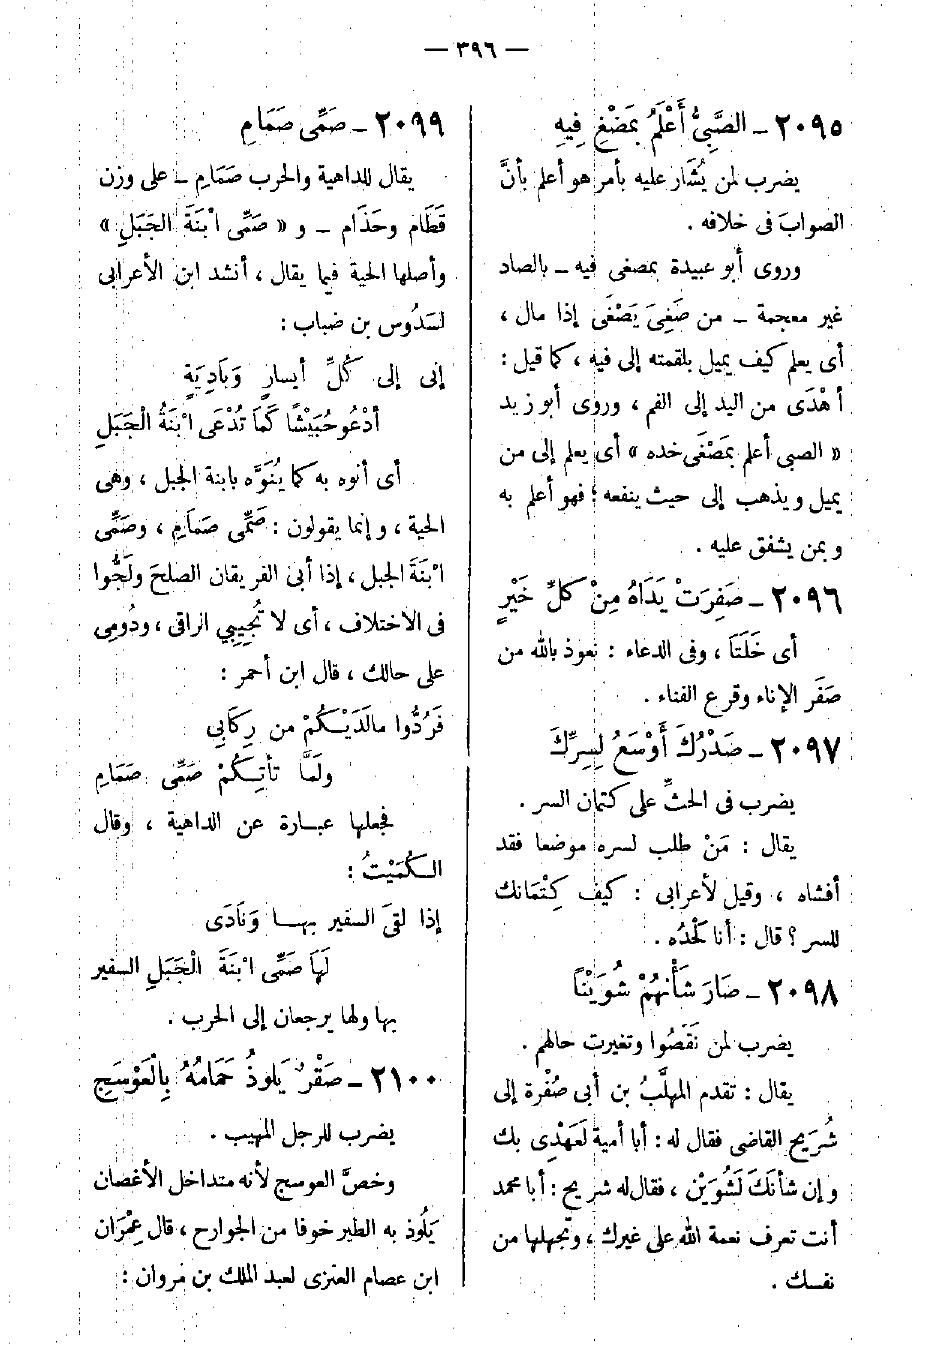 — ٣٩٦ —
٢٠٩٥ ـ الصَّبِىُّ أَعْلَمُ بِمَضْغِ فِيهِ
يضرب لمن يُشَار عليه بأمر هو أعلم بأنَّ
الصوابَ فى خلافه .
وروى أبو عبيدة بمصغى فيه ـ بالصاد
غير معجمة ـ من صَغِىَ يَصْغَى إذا مال ،
أى يعلم كيف يميل بلقمته إلى فيه ، كما قيل :
أهْدَى من اليد إلى الفم ، وروى أبو زيد
« الصبى أعلم بمَصْغَى خده » أى يعلم إلى من
يميل ويذهب إلى حيث ينفعه ؛ فهو أعلم به
وبمن يشفق عليه .
٢٠٩٦ ـ صَفِرَتْ يَدَاهُ مِنْ كلِّ خَيْرٍ
أى خَلَتَا ، وفى الدعاء : نعوذ بالله من
صَفَر الإناء وقرع الفناء .
٢٠٩٧ ـ صَدْرُكَ أَوْسَعُ لِسِرِّكَ
يضرب فى الحثِّ على كتمان السر .
يقال : مَنْ طلب لسره موضعا فقد
أفشاه ، وقيل لأعرابى : كيف كِتْمَانك
للسر ؟ قال : أنا لَحْدُه .
٢٠٩٨ ـ صَارَ شَأْنهُمْ شُوَيْنًا
يضرب لمن نَقَصُوا وتغيرت حالهم .
يقال : تقدم المهلَّبُ بن أبى صُفْرة إلى
شُرَيح القاضى فقال له : أبا أمية لَعَهْدِى بك
وإن شأنَكَ لَشُوَيْن ، فقال له شريح : أبا محمد
أنت تعرف نعمة الله على غيرك ، وتجهلها من
نفسك .
٢٠٩٩ ـ صَمِّى صَمَامِ
يقال للداهية والحرب صَمَامِ ـ على وزن
قَطَام وحَذَام ـ و « صَمِّى ابْنَةَ الجَبَلِ »
وأصلها الحية فيما يقال ، أنشد ابن الأعرابى
لسَدُوس بن ضباب :
إنى إلى كُلِّ أيسارٍ وَبَادِيَةٍ
أدْعُو حُبَيْشًا كَمَا تُدْعَى ابْنَةُ الْجَبَلِ
أى أنوه به كما يُنَوَّه بابنة الجبل ، وهى
الحية ، وإنما يقولون : صَمِّى صَمَامِ ، وصَمِّى
ابْنَةَ الجبل ، إذا أبى الفريقان الصلحَ ولَجُّوا
فى الاختلاف ، أى لا تُجِيبِي الراقى ، ودُومِى
على حالك ، قال ابن أحمر :
فَرُدُّوا مالَدَيْكُمْ من رِكَابِي
ولَمَّا تأتِكُمْ صَمِّى صَمَامِ
فجعلها عبارة عن الداهية ، وقال
الكُمَيْتُ :
إذا لقىَ السفير بها وَنَادَى
لَهَا صَمِّى ابْنَةَ الْجَبَلِ السفير
بها ولها يرجعان إلى الحرب .
٢١٠٠ ـ صَقْرٌ يَلوذُ حَمَامُهُ بِالْعَوْسَجِ
يضرب للرجل المهيب .
وخصَّ العوسج لأنه متداخل الأغصان
يَلُوذ به الطير خوفا من الجوارح ، قال عِمْرَان
ابن عصام العنزى لعبد الملك بن مروان :